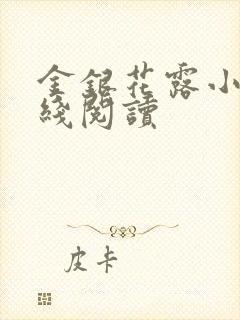 金銀花露小
綫閱讀
皮卡